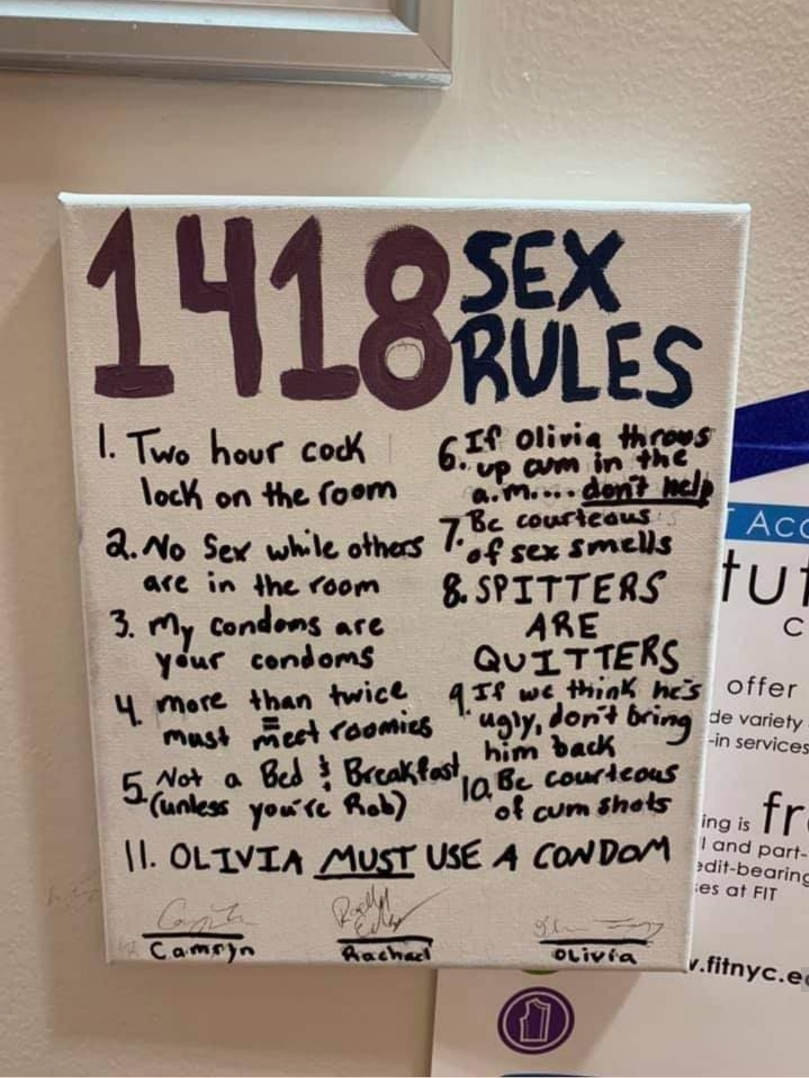 1418 SEX
RULES
1. Two hour cock
lock on the room
2. No Sex while others
are in the room
3. My condoms are
your condoms
4. more than twice
= must meet roomies
5. Not a Bed & Breakfast
(unless you're Rob)
6. If Olivia throws
up cum in the
a.m.... don't help
7. Be courteous
of sex smells
8. SPITTERS
ARE
QUITTERS
9. If we think he's
ugly, don't bring
him back
10. Be courteous
of cum shots
11. OLIVIA MUST USE A CONDOM
Camryn
Rachael
Olivia
Camryn Rachael OLivia
offer
de variety
-in services
ing is fr
l and part-
edit-bearing
es at FIT
.fitnyc.e